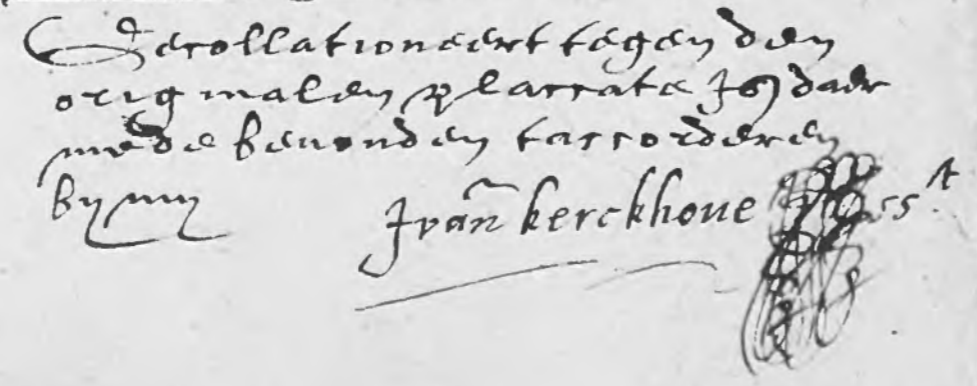 Gecollationeert tegen den
originalen placcate Is daer
mede bevonden taccorderen
by my
J van kerckhove